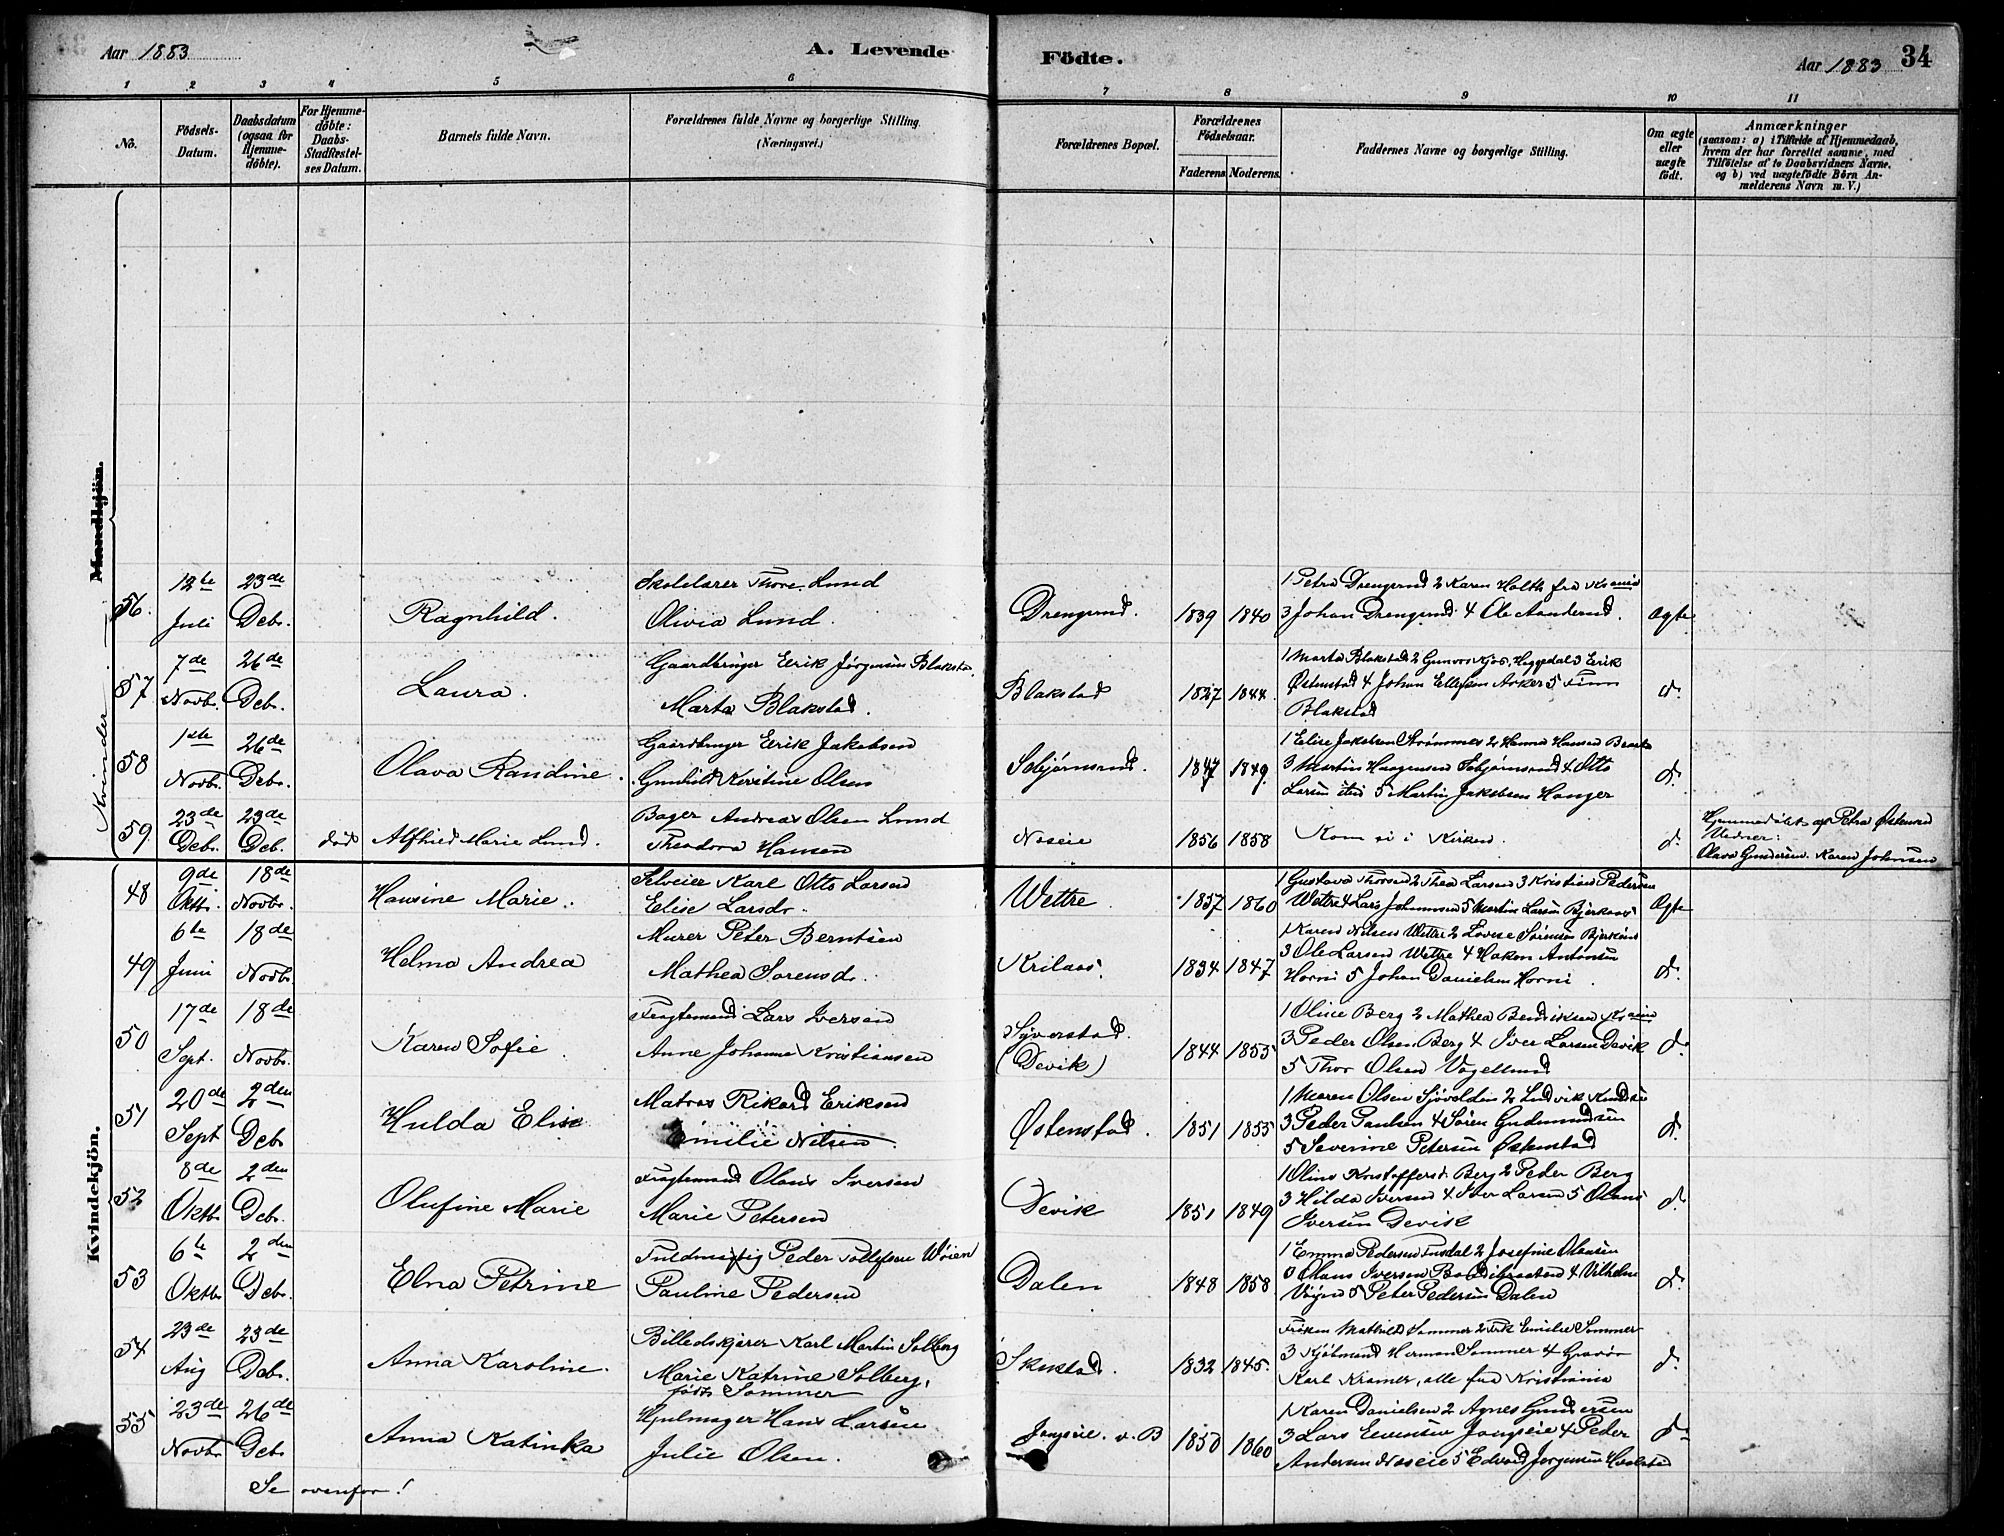 Aar 1883
A. Levende
Födte.
Aar 1883
34
1 2 3 4 5 6 7 8 9 10 11
No.
Födsels-
Datum.
Daabsdatum
(ogsaa for
Hjemme-
döbte).
For Hjemme-
döbte:
Daabs-
Stadfæstel-
ses Datum.
Barnets fulde Navn.
Forældrenes fulde Navne og borgerlige Stilling.
(Næringsvei.)
Forældrenes Bopæl.
Forældrenes
Födselsaar.
Faderens. Moderens.
Faddernes Navne og borgerlige Stilling.
Om ægte
eller
uægte
födt.
Anmærkninger
(saasom: a) i Tilfælde af Hjemmedaab,
hvem der har forrettet samme, med
Tilföielse af to Daabsvidners Navne,
og b) ved uægtefödte Börn An-
melderens Navn m. V.)
Mandkjön.
Kvinder
56.
12te Juli
23de Debr.
Ragnhild.
Skolelærer Thore Lund
Olivia Lund.
Drengsrud.
1839 1840
1 Petra Drengsrud 2 Karen Holth fra
3 Johan Drengsrud 4 Ole Aanderud.
Ægte
57
7de Novbr.
26de Debr.
Laura.
Gaardbruger Eerik Jørgensen Blakstad.
Marta Blakstad.
Blakstad
1827 1844.
1 Marta Blakstad 2 Gunvor Kjos, Heggedal 3 Erik
Østenstad 4 Johan Ellefsen Asker 5 Finn
Blakstad
d.
58
1ste Novbr.
26de Debr.
Olava Randine.
Gaardbruger Eerik Jakobsen
Gunhild Kirstine Olsen
Sobjørnsrud.
1847 1849.
1 Elise Jakobsen Strømmes 2 Hanna Hansen
3 Martin Sobjørnsrud 4 Otto
Larsen 5 Martin Jakobsen Hanger
d.
59.
23de Debr.
23de Debr.
død
Alfhild Marie Lund.
Bager Andreas Olsen Lund
Theodora Hansen
Næseie
1856 1858
Kom ei i Kirken.
d.
Hjemmedøbt af Petra Østensen
Vidner:
Olava Gundersen. Karen Johnsen
Kvindekjön.
48
9de Oktbr.
18de Novbr.
Hansine Marie.
Selveier Karl Otto Larsen
Elise Larsdr.
Wettre
1857 1860
1 Gustava Thorsen 2 Thea Larsen 3 Kristian Pedersen
Wettre 4 Lars Johannsen 5 Martin Larsen Bjerkaas
Ægte
49
6te Juni
18de Novbr.
Helma Andrea
Murer Peter Berntsen
Mathea Sorensd.
Krilaas.
1834 1847
1 Karen Nilsen Wettre 2 Lovise Sørensen Bjerkaas
3 Ole Larsen Wettre 4 Hakon Antonsen
Horni 5 Johan Danielsen Horni.
d.
50
17de Sept.
18de Novbr.
Karen Sofie.
Fragtemand Lars Iversen
Anne Johanne Kristiansen
Syverstad.
(Devik)
1844 1853
1 Oline Berg 2 Mathea Bendiksen
3 Peder Olsen Berg 4 Iver Larsen Devik
5 Thor Olsen Vogellund
d.
51
20de Sept
2den Debr
Hulda Elise
Matros Rikard Eriksen
Emilie Nilsen
Østenstad.
1851 1855
1 Maren Olsen Sjøvolden 2 Ludvik Knudsen
3 Peder Paulsen 4 Søren Gudmundsen
5 Severine Petersen Østenstad
d.
52
8de Oktbr
2den Debr.
Olufine Marie
Fragtemand Olaus Iversen
Marie Petersen
Devik
1851 1849
1 Oline Kristoffersd. Berg 2 Peder Berg
3 Hilda Iversen 4 Iver Larsen 5 Olaus
Iversen Devik
d.
53
6te Oktbr.
2den Debr.
Elna Petrine
Fuldmægtig Peder Tollefsen Wøien
Pauline Pedersen
Dalen
1848 1858
1 Emma Pedersen 2 Josefine Olausen
3 Olaus Iversen 4 Vilhelm
5 Peter Pedersen Dalen
d.
54
23de Aug
23de Debr.
Anna Karoline.
Billedskjærer Karl Martin Solberg
Marie Katrine Solberg,
født Sommer
Skustad.
1832 1845.
Frøken Mathild Sommer 2 Frk Emilie Sommer
3 Kjøbmand Herman Sommer 4 Gravør
Karl Kramer, alle fra Kristiania
d.
55
23de Novbr
26de Debr
Anna Katinka
Hjulmager Hans Larsen
Julie Olsen.
Jongseie. v. B
1850 1860
1 Karen Danielsen 2 Agnes Gundersen
3 Lars Evensen Jongseie 4 Peder
Andersen Næseie 5 Edvard Jørgensen
d.
Se ovenfor!